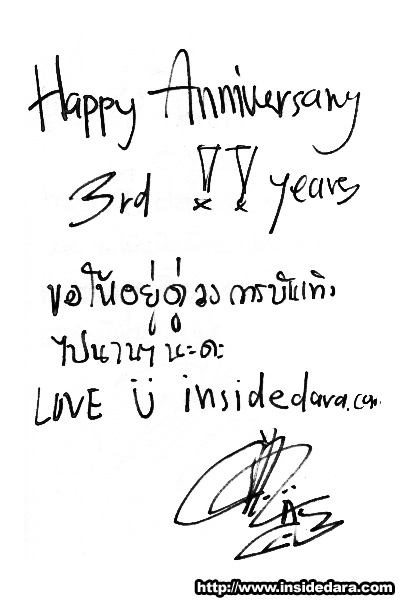 Happy Anniversary
3rd !! years
ขอให้อยู่คู่วงการบันเทิง
ไปนานๆ นะคะ
LOVE Ü insidedara.com
http://www.insidedara.com